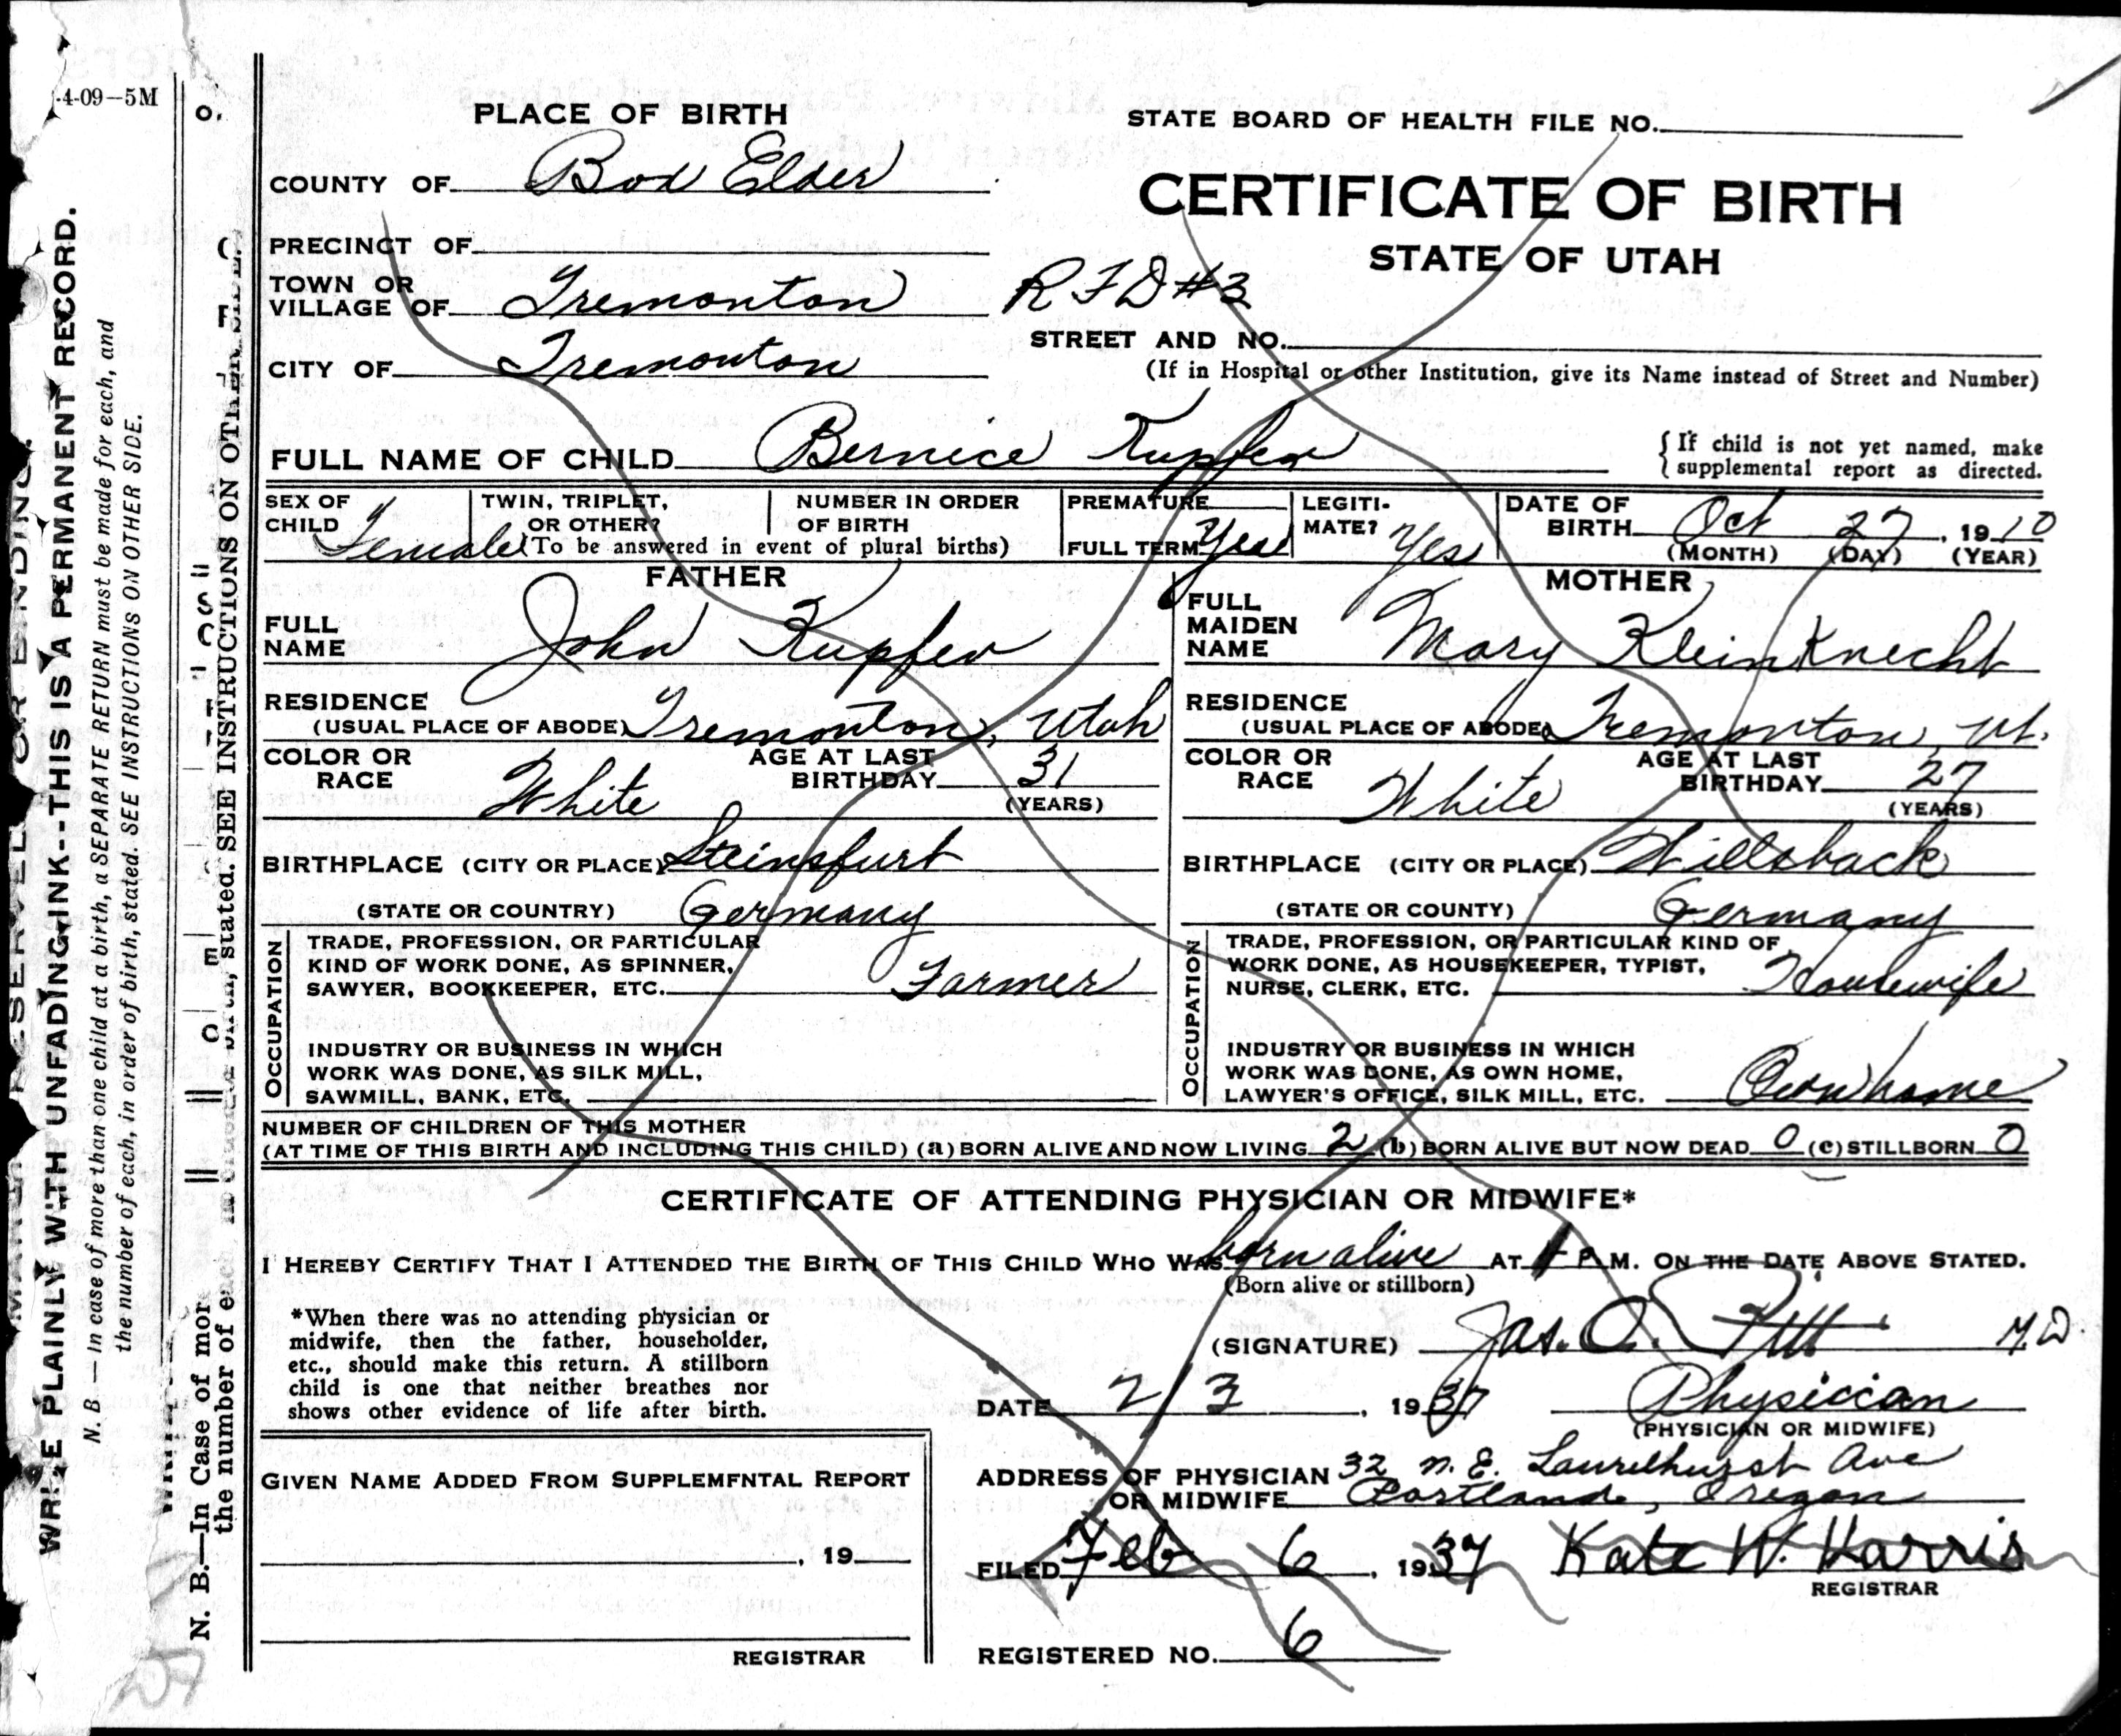 4-09-5M
WRITE PLAINLY WITH UNFADING INK--THIS IS A PERMANENT RECORD.
N. B.—In case of more than one child at a birth, a SEPARATE RETURN must be made for each, and
the number of each, in order of birth, stated. SEE INSTRUCTIONS ON OTHER SIDE.
N. B.—In Case of mor
the number of each, birth, stated. SEE INSTRUCTIONS ON OTHER SIDE.
PLACE OF BIRTH
COUNTY OF Box Elder
PRECINCT OF
TOWN OR
VILLAGE OF Tremonton
CITY OF Tremonton
STATE BOARD OF HEALTH FILE NO.
CERTIFICATE OF BIRTH
STATE OF UTAH
R F D #3
STREET AND NO.
(If in Hospital or other Institution, give its Name instead of Street and Number)
FULL NAME OF CHILD Bernice Kupfer
{If child is not yet named, make
supplemental report as directed.
SEX OF
CHILD Female
TWIN, TRIPLET,
OR OTHER?
NUMBER IN ORDER
OF BIRTH
(To be answered in event of plural births)
PREMATURE
FULL TERM Yes
LEGITI-
MATE? Yes
DATE OF
BIRTH Oct 27, 1910
(MONTH) (DAY) (YEAR)
FATHER
FULL
NAME John Kupfer
RESIDENCE
(USUAL PLACE OF ABODE) Tremonton, Utah
COLOR OR
RACE White
AGE AT LAST
BIRTHDAY 31
(YEARS)
BIRTHPLACE (CITY OR PLACE) Steinsfurt
(STATE OR COUNTRY) Germany
OCCUPATION
TRADE, PROFESSION, OR PARTICULAR
KIND OF WORK DONE, AS SPINNER,
SAWYER, BOOKKEEPER, ETC. Farmer
INDUSTRY OR BUSINESS IN WHICH
WORK WAS DONE, AS SILK MILL,
SAWMILL, BANK, ETC.
MOTHER
FULL
MAIDEN
NAME Mary KleinKnecht
RESIDENCE
(USUAL PLACE OF ABODE) Tremonton, Ut.
COLOR OR
RACE White
AGE AT LAST
BIRTHDAY 27
(YEARS)
BIRTHPLACE (CITY OR PLACE) Willsback
(STATE OR COUNTY) Germany
OCCUPATION
TRADE, PROFESSION, OR PARTICULAR KIND OF
WORK DONE, AS HOUSEKEEPER, TYPIST,
NURSE, CLERK, ETC. Housewife
INDUSTRY OR BUSINESS IN WHICH
WORK WAS DONE, AS OWN HOME,
LAWYER'S OFFICE, SILK MILL, ETC. Own home
NUMBER OF CHILDREN OF THIS MOTHER
(AT TIME OF THIS BIRTH AND INCLUDING THIS CHILD) (a) BORN ALIVE AND NOW LIVING 2 (b) BORN ALIVE BUT NOW DEAD 0 (c) STILLBORN 0
CERTIFICATE OF ATTENDING PHYSICIAN OR MIDWIFE*
I HEREBY CERTIFY THAT I ATTENDED THE BIRTH OF THIS CHILD WHO WAS born alive AT P.M. ON THE DATE ABOVE STATED.
(Born alive or stillborn)
*When there was no attending physician or
midwife, then the father, householder,
etc., should make this return. A stillborn
child is one that neither breathes nor
shows other evidence of life after birth.
(SIGNATURE) Jas. O. M.D.
DATE 2/3, 1937 Physician
(PHYSICIAN OR MIDWIFE)
ADDRESS OF PHYSICIAN 32 N.E. Laurelhurst Ave
OR MIDWIFE Portland, Oregon
FILED Feb 6, 1937 Kate W. Harris
REGISTRAR
REGISTERED NO. 6
GIVEN NAME ADDED FROM SUPPLEMENTAL REPORT
, 19
REGISTRAR